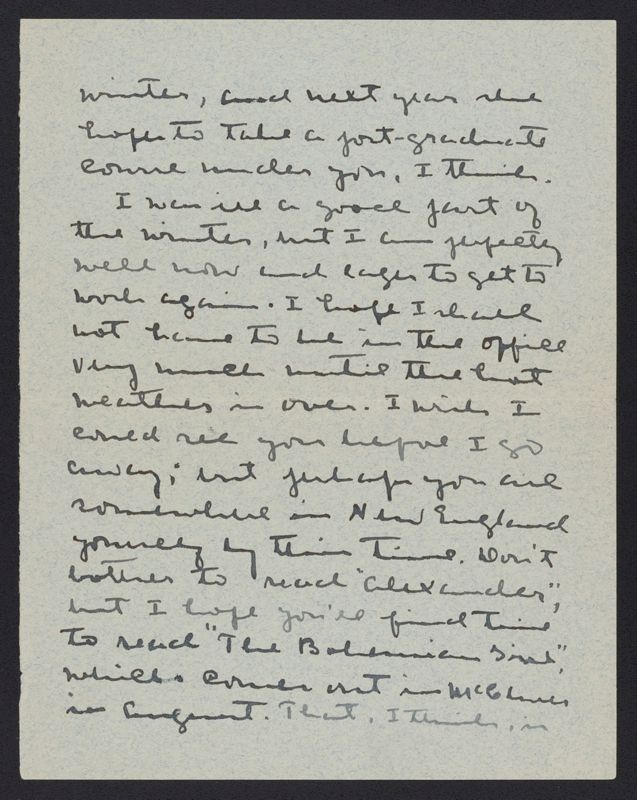 winter, and next year she
hopes to take a post-graduate
course under you, I think.
I was ill a good part of
the winter, but I am perfectly
well now and eager to get to
work again. I hope I shall
not have to be in the office
very much until the hot
weather is over. I wish I
could see you before I go
away; but perhaps you are
somewhere in New England
yourself by this time. Don't
bother to read "Alexander",
but I hope you'll find time
to read "The Bohemian Girl",
which comes out in McClures
in August. That, I think, is